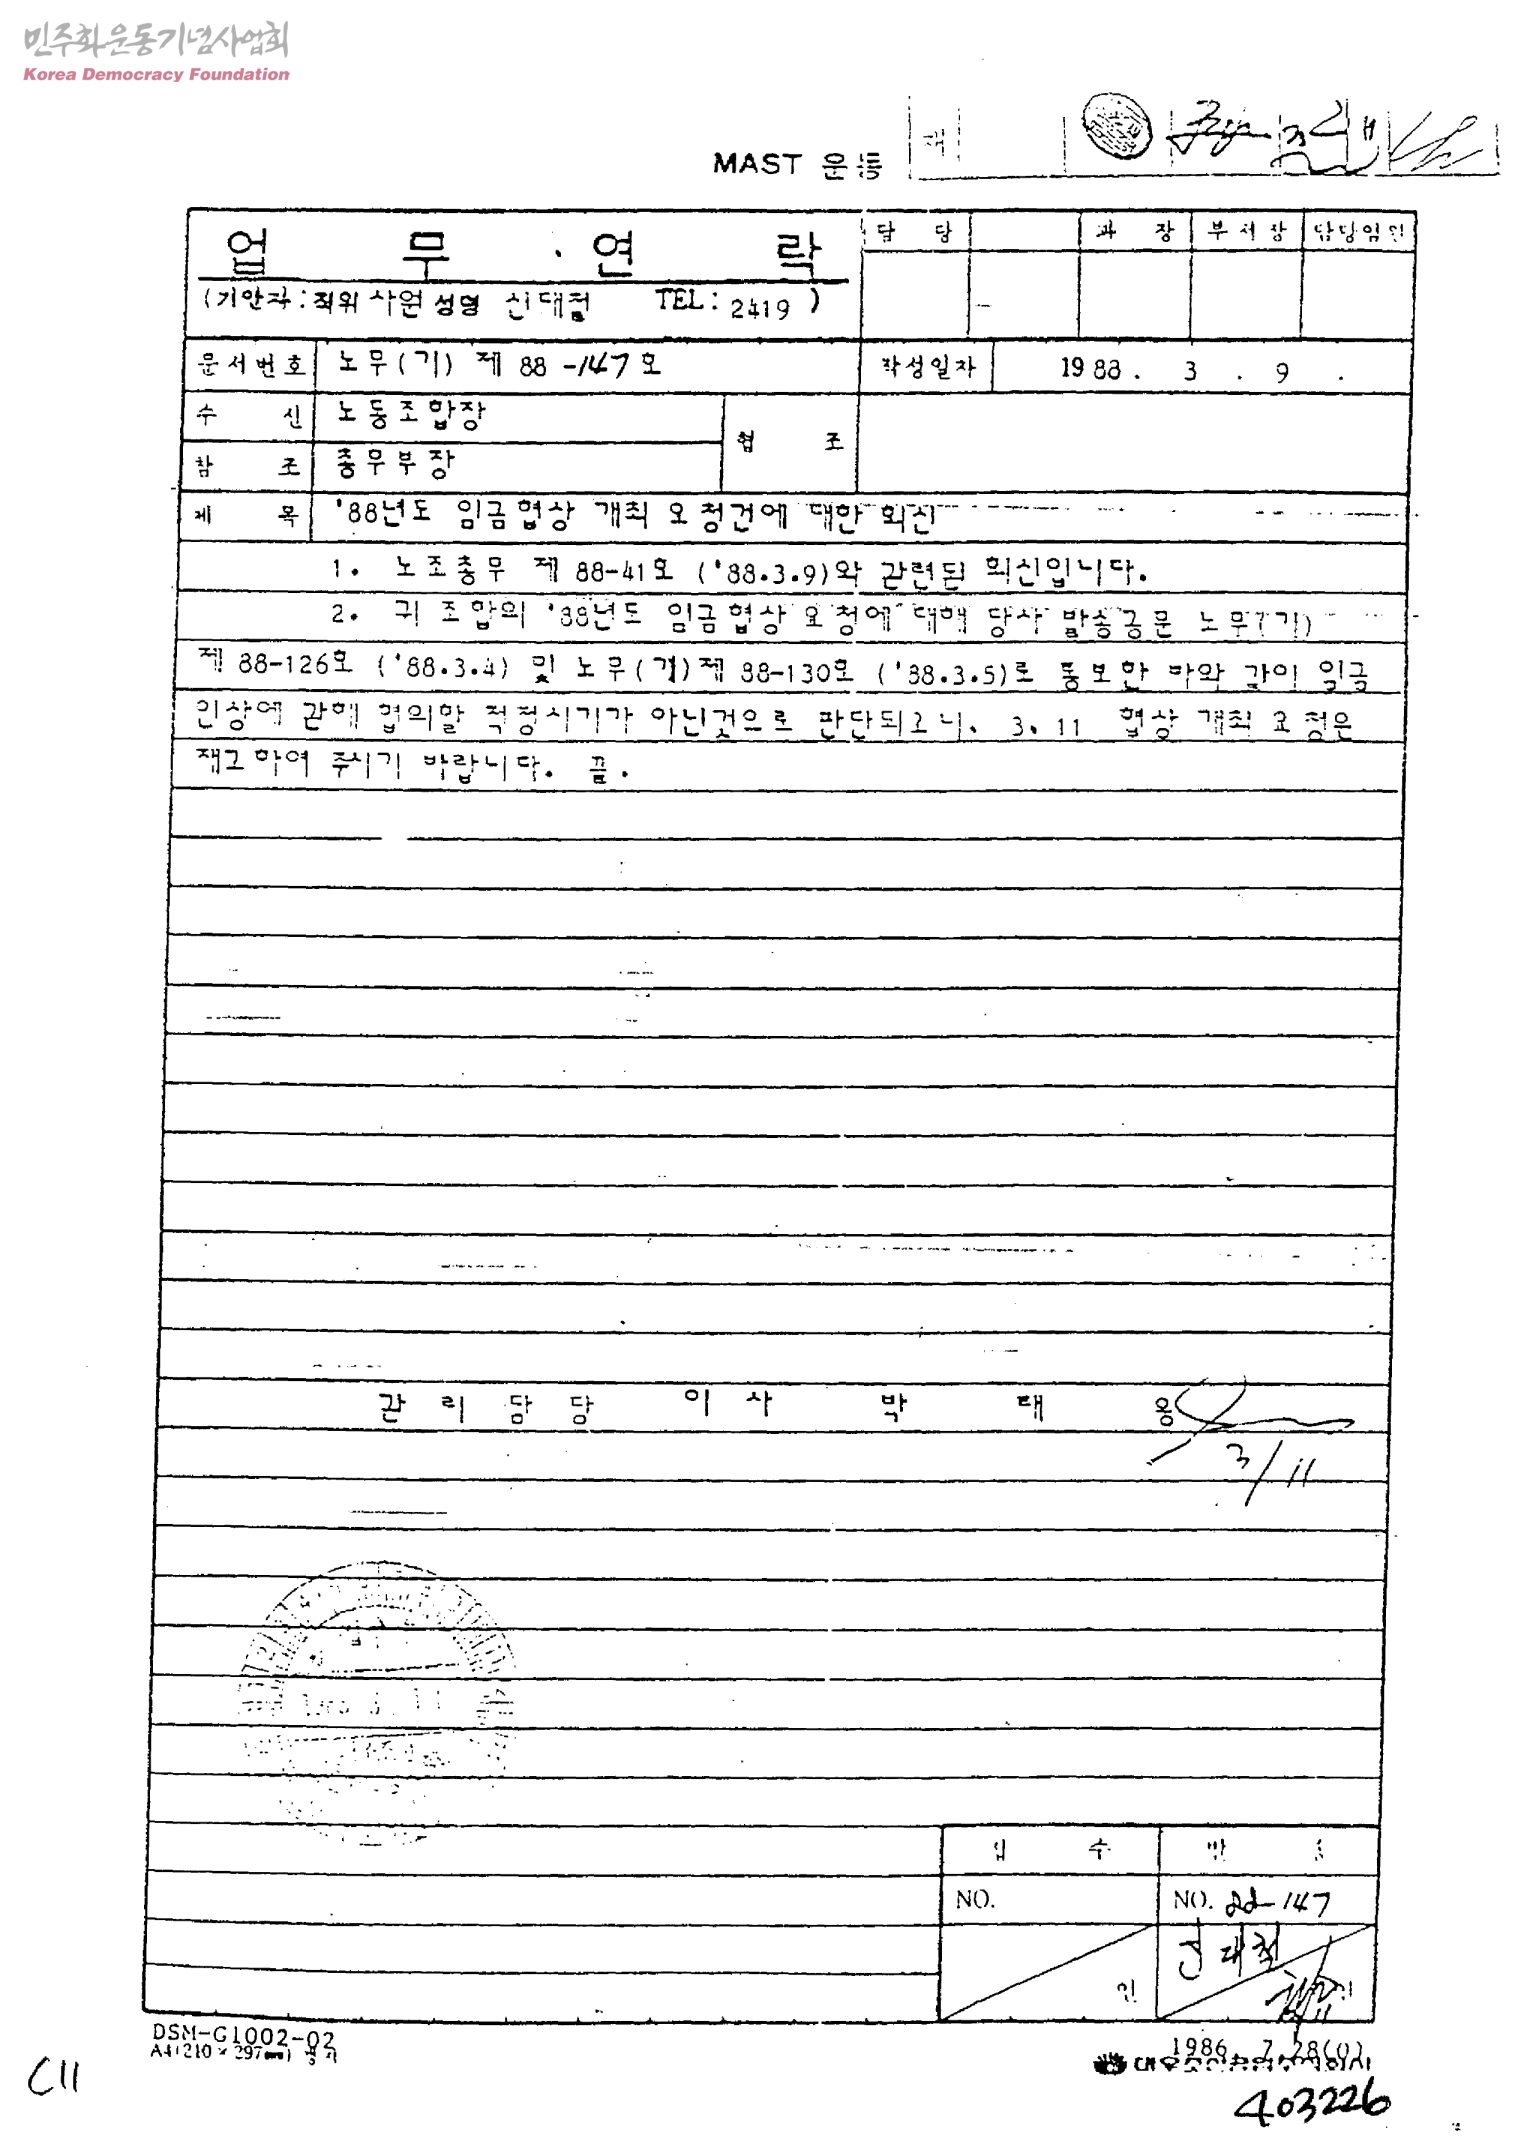 민주화운동기념사업회
Korea Democracy Foundation
MAST 운동
업 무 연 락
(기안자 : 직위 사원 성명 신대철 TEL : 2419 )
담 당 과 장 부 서 장 담당임원
문서번호 노무(기) 제 88 -147호 작성일자 1988 . 3 . 9 .
수 신 노동조합장
협 조
참 조 총무부장
제 목 '88년도 임금협상 개최 요청건에 대한 회신
1. 노조총무 제 88-41호 ('88.3.9)와 관련된 회신입니다.
2. 귀 조합의 '88년도 임금협상 요청에 대해 당사 발송공문 노무(기)
제 88-126호 ('88.3.4) 및 노무(기)제 88-130호 ('88.3.5)로 통보한 바와 같이 임금
인상에 관해 협의할 적정시기가 아닌것으로 판단되오니. 3. 11 협상 개최 요청은
재고하여 주시기 바랍니다. 끝.
관 리 담 당 이 사 박 태 웅
3/11
접 수 발 송
NO. NO. 88-147
인
DSM-G1002-02
A4(210×297㎜)
1986. 7.28(0)
C11
403226